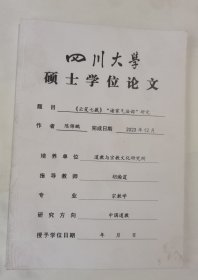 四川大學
硕士学位论文
题目 《云笈七籤》“诸家气法部”研究
作者 陈锦鹏 完成日期 2023 年 12 月
培养单位 道教与宗教文化研究所
指导教师
专业 宗教学
研究方向 中国道教
授予学位日期 年 月 日